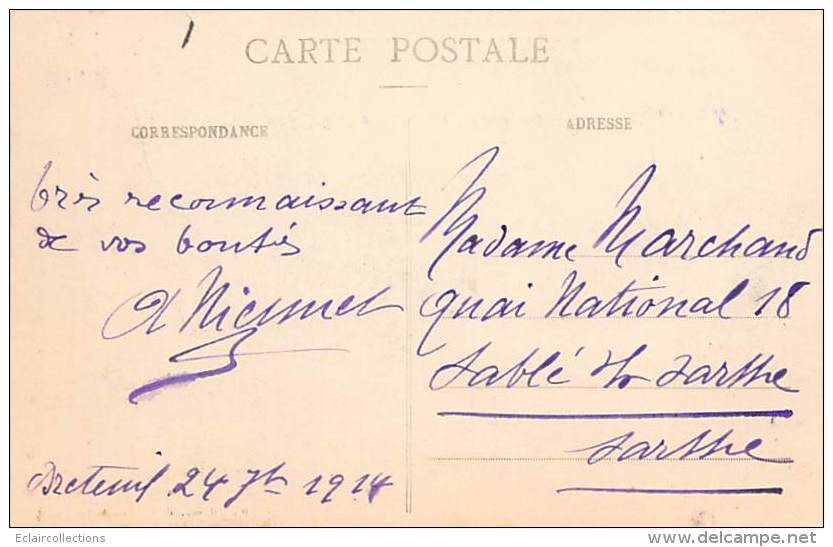 CARTE POSTALE
CORRESPONDANCE
très reconnaissant
de vos bontés
Breteuil 24 7bre 1914
ADRESSE
Madame Marchand
quai National 18
Sablé s/r Sarthe
Sarthe
Eclaircollections
www.delcampe.net